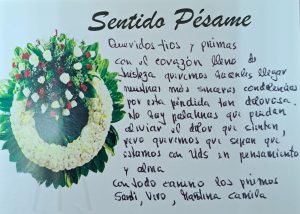 Sentido Pésame
Queridos tios y primas
con el corazón lleno de
tristeza queremos hacerles llegar
nuestras más sinceras condolencias
por esta pérdida tan dolorosa.
No hay palabras que puedan
aliviar el dolor que sienten,
pero queremos que sepan que
estamos con Uds en pensamiento
y alma
Con todo cariño los primos
Santi, Vivo, Martina Camila